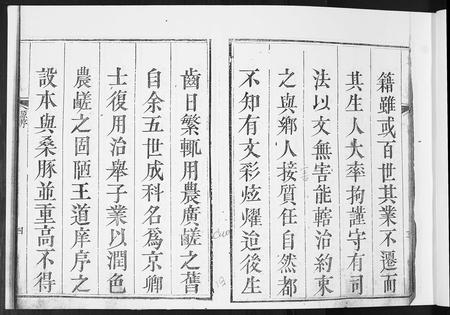 籍雖或百世其業不遷而
其生人大率拘謹守有司
法以文無害能轄治約束
之與鄉人接質任自然都
不知有文彩炫耀迨後生
齒日繁輒用農廣鹺之舊
自余五世成科名為京卿
士復用治舉子業以潤色
農鹺之固陋王道庠序之
設本與桑豚並重高不得